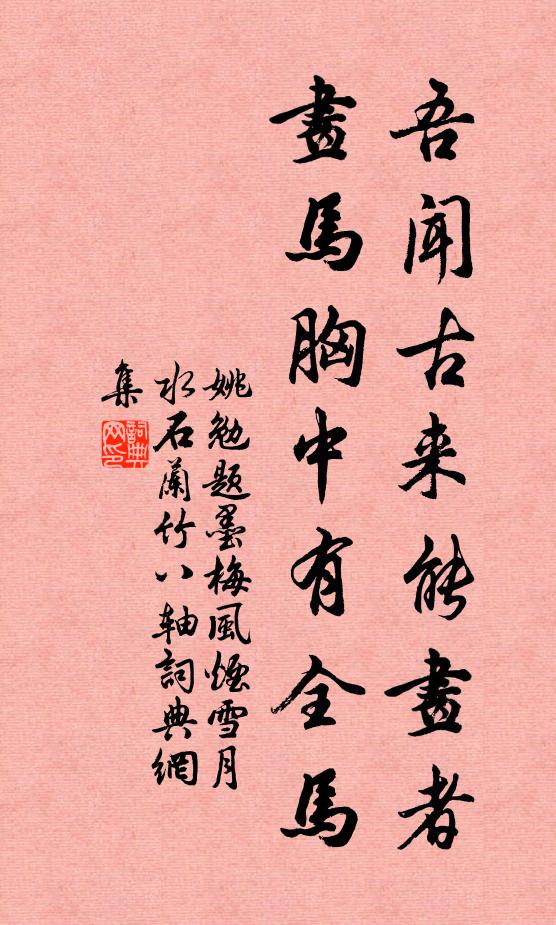 吾聞古来能畫者
畫馬胸中有全馬
姚勉題墨梅風煙雪月
水石蘭竹八軸詞典網
集
詞典網印